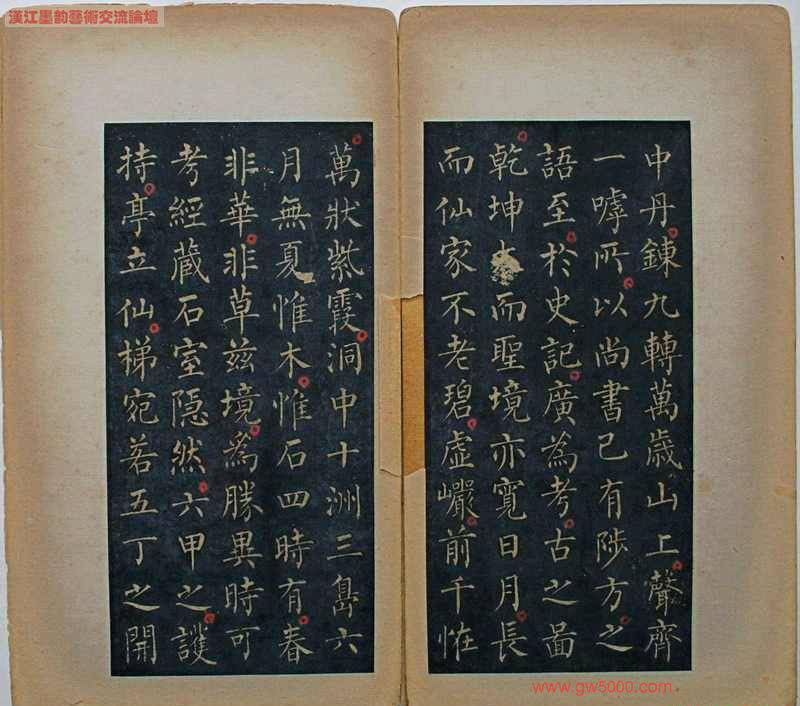 漢江墨韵藝術交流論壇
中丹錬九轉萬歲山上聲齊
一嘑所以尚書已有陟方之
語至於史記廣為考古之啚
乾坤大而聖境亦寬日月長
而仙家不老碧虛巖前千恠
萬狀紫霞洞中十洲三島六
月無夏惟木惟石四時有春
非華非草茲境為勝異時可
考經藏石室隱然六甲之護
持亭立仙梯宛若五丁之開
www.gw5000.com